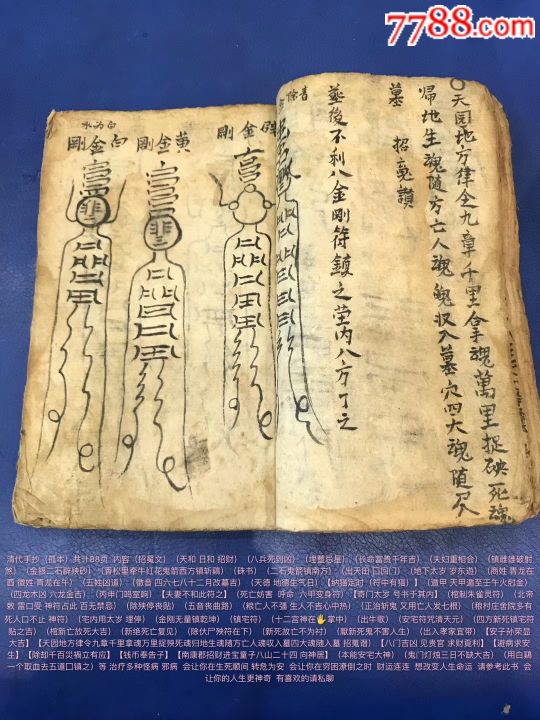 7788.com
○天园地方律令九章千里拿魂萬里捉砄死魂
歸地生魂随方亡人魂魄収入墓穴四大魂随入
墓 招䰟讃
葬後不利八金剛符鎮之茔内八方丁之
金剛
黄金剛
白金剛
白为水
清代手抄（孤本）共计88页 内容（招冤文）（天和 日和 招财）（八兵死到凶）（埋整忌星）（长命富贵千年吉）（夫妇重相合）（镇雌雄破射
煞）（金银二石辟殃砂）（香松里牵牛红花鬼箭酉方镇斩鷄）（硃书）（二石鬼箭镇南方）（出天田 门园门）（地下太岁东遊）（商姓 青龙在
酉 徵姓 青龙在午）（五姓凶道）（徵音 四六七八十二月改墓吉）（天德 地德生气日）【纳猫忿时（符中有猫）】【遁甲 天甲遁至壬午火尅金】
（四龙木凶 六龙金吉）（丙申门鸣室响）【夫妻不和此符之】（死亡妨害 呼命 六甲变身符）【奇门太岁 号书于其内】（棺制朱雀灵符）（北帝
敕 雷口受 神符占此 百无禁忌）（除殃停丧贴）（五音丧曲路）（粮亡人不强 生人不吉心中热）（正治斩鬼 又用亡人发七根）（粮村庄舍院多有
死人口不止 神符式）（宅内用太岁 埋停）（金刚无量镇乾坤）（镇宅符）（十二宫神在✋掌中）（出牛歌）（安宅符咒清天元）（四方新死镇宅符
贴之吉）（棺新亡放死大吉）（新绝死亡复见）（除伏尸殃符在下）（新死故亡不为衬）（厭斩死鬼不害人生）（出入孝家宜带）【安子孙荣显
大吉】【天园地方律令九章千里拿魂万里捉殃死魂归地生魂随方亡人魂収入墓四大魂随入墓 招冤谱】【八门吉凶 见贵官 求财觅利】【避病求安
生】【除却千百灾祸立有应】【钱币奉告子】【南康郡招财进宝童子八山二十四 向神居】（本能安宅大神）（鬼门灯烛三日不缺大吉）（用白鷄
一个取血去五道口镇之）等 治疗多种怪病 邪病 会让你在生死顺间 转危为安 会让你在穷困潦倒之时 财运连连 想改变人生命运 请参考此书 会
让你的人生更神奇 有喜欢的请私聊